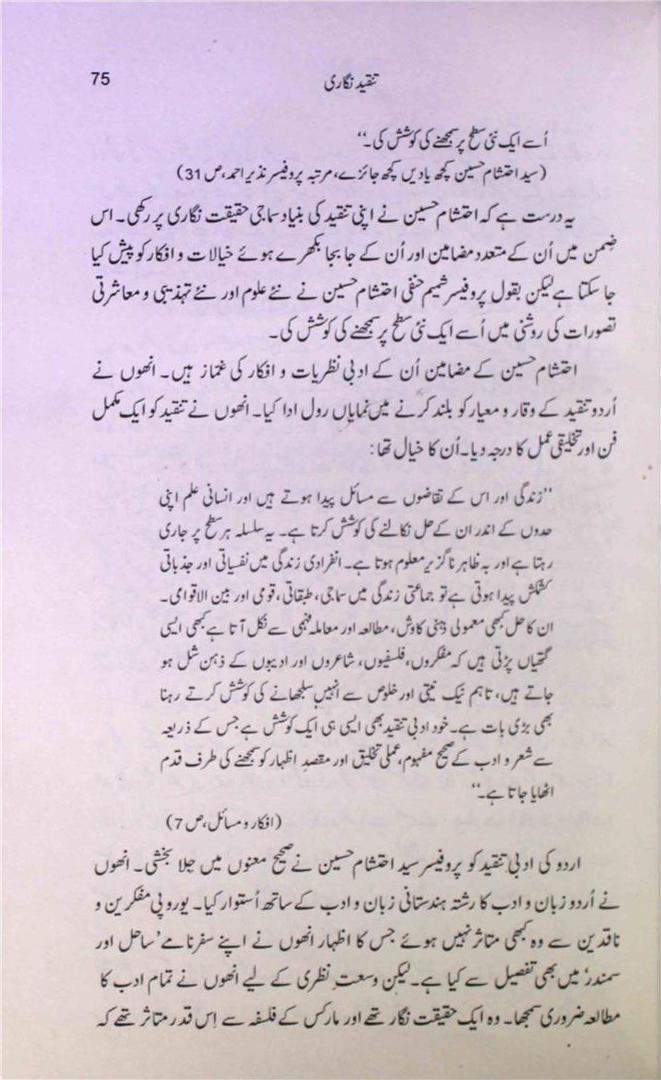 تنقید نگاری
75
اُسے ایک نئی سطح پر سمجھنے کی کوشش کی۔‘‘
(سید احتشام حسین کچھ یادیں کچھ جائزے، مرتبہ پروفیسر نذیر احمد، ص 31)
یہ درست ہے کہ احتشام حسین نے اپنی تنقید کی بنیاد سماجی حقیقت نگاری پر رکھی۔ اس
ضِمن میں اُن کے متعدد مضامین اور اُن کے جا بجا بکھرے ہوئے خیالات و افکار کو پیش کیا
جا سکتا ہے لیکن بقول پروفیسر شمیم حنفی احتشام حسین نے نئے علوم اور نئے تہذیبی و معاشرتی
تصورات کی روشنی میں اُسے ایک نئی سطح پر سمجھنے کی کوشش کی۔
احتشام حسین کے مضامین اُن کے ادبی نظریات و افکار کی غماز ہیں۔ انھوں نے
اُردو تنقید کے وقار و معیار کو بلند کرنے میں نمایاں رول ادا کیا۔ انھوں نے تنقید کو ایک مکمل
فن اور تخلیقی عمل کا درجہ دیا۔ اُن کا خیال تھا:
’’زندگی اور اس کے تقاضوں سے مسائل پیدا ہوتے ہیں اور انسانی علم اپنی
حدوں کے اندر ان کے حل نکالنے کی کوشش کرتا ہے۔ یہ سلسلہ ہر سطح پر جاری
رہتا ہے اور بہ ظاہر ناگزیر معلوم ہوتا ہے۔ انفرادی زندگی میں نفسیاتی اور جذباتی
کشمکش پیدا ہوتی ہے تو جماعتی زندگی میں سماجی، طبقاتی، قومی اور بین الاقوامی۔
ان کا حل کبھی معمولی ذہنی کاوش، مطالعہ اور معاملہ فہمی سے نکل آتا ہے کبھی ایسی
گتھیاں پڑتی ہیں کہ مفکروں، فلسفیوں، شاعروں اور ادیبوں کے ذہن شل ہو
جاتے ہیں، تاہم نیک نیتی اور خلوص سے انہیں سلجھانے کی کوشش کرتے رہنا
بھی بڑی بات ہے۔ خود ادبی تنقید بھی ایسی ہی ایک کوشش ہے جس کے ذریعہ
سے شعر و ادب کے صحیح مفہوم، عملی تخلیق اور مقصدِ اظہار کو سمجھنے کی طرف قدم
اٹھایا جاتا ہے۔‘‘
(افکار و مسائل، ص 7)
اردو کی ادبی تنقید کو پروفیسر سید احتشام حسین نے صحیح معنوں میں جِلا بخشی۔ انھوں
نے اُردو زبان و ادب کا رشتہ ہندستانی زبان و ادب کے ساتھ اُستوار کیا۔ یوروپی مفکرین و
ناقدین سے وہ کبھی متاثر نہیں ہوئے جس کا اظہار انھوں نے اپنے سفرنامے ’ساحل اور
سمندر‘ میں بھی تفصیل سے کیا ہے۔ لیکن وسعتِ نظری کے لیے انھوں نے تمام ادب کا
مطالعہ ضروری سمجھا۔ وہ ایک حقیقت نگار تھے اور مارکس کے فلسفہ سے اِس قدر متاثر تھے کہ